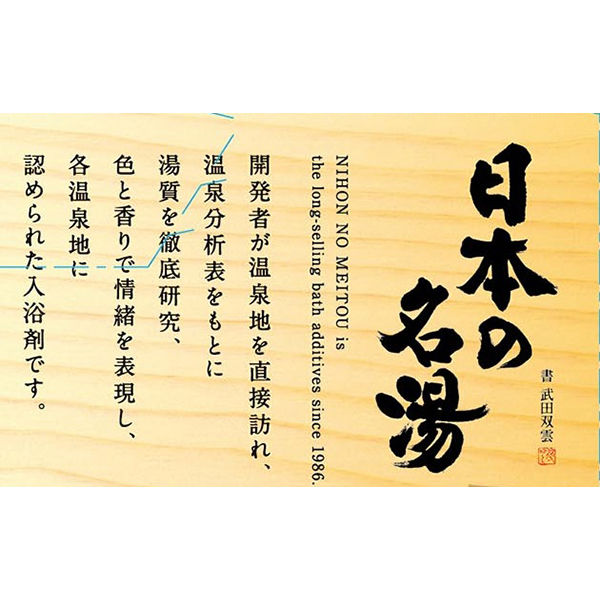 日本の
名湯
書 武田双雲
NIHON NO MEITOU is
the long-selling bath additives since 1986.
開発者が温泉地を直接訪れ、
温泉分析表をもとに
湯質を徹底研究、
色と香りで情緒を表現し、
各温泉地に
認められた入浴剤です。